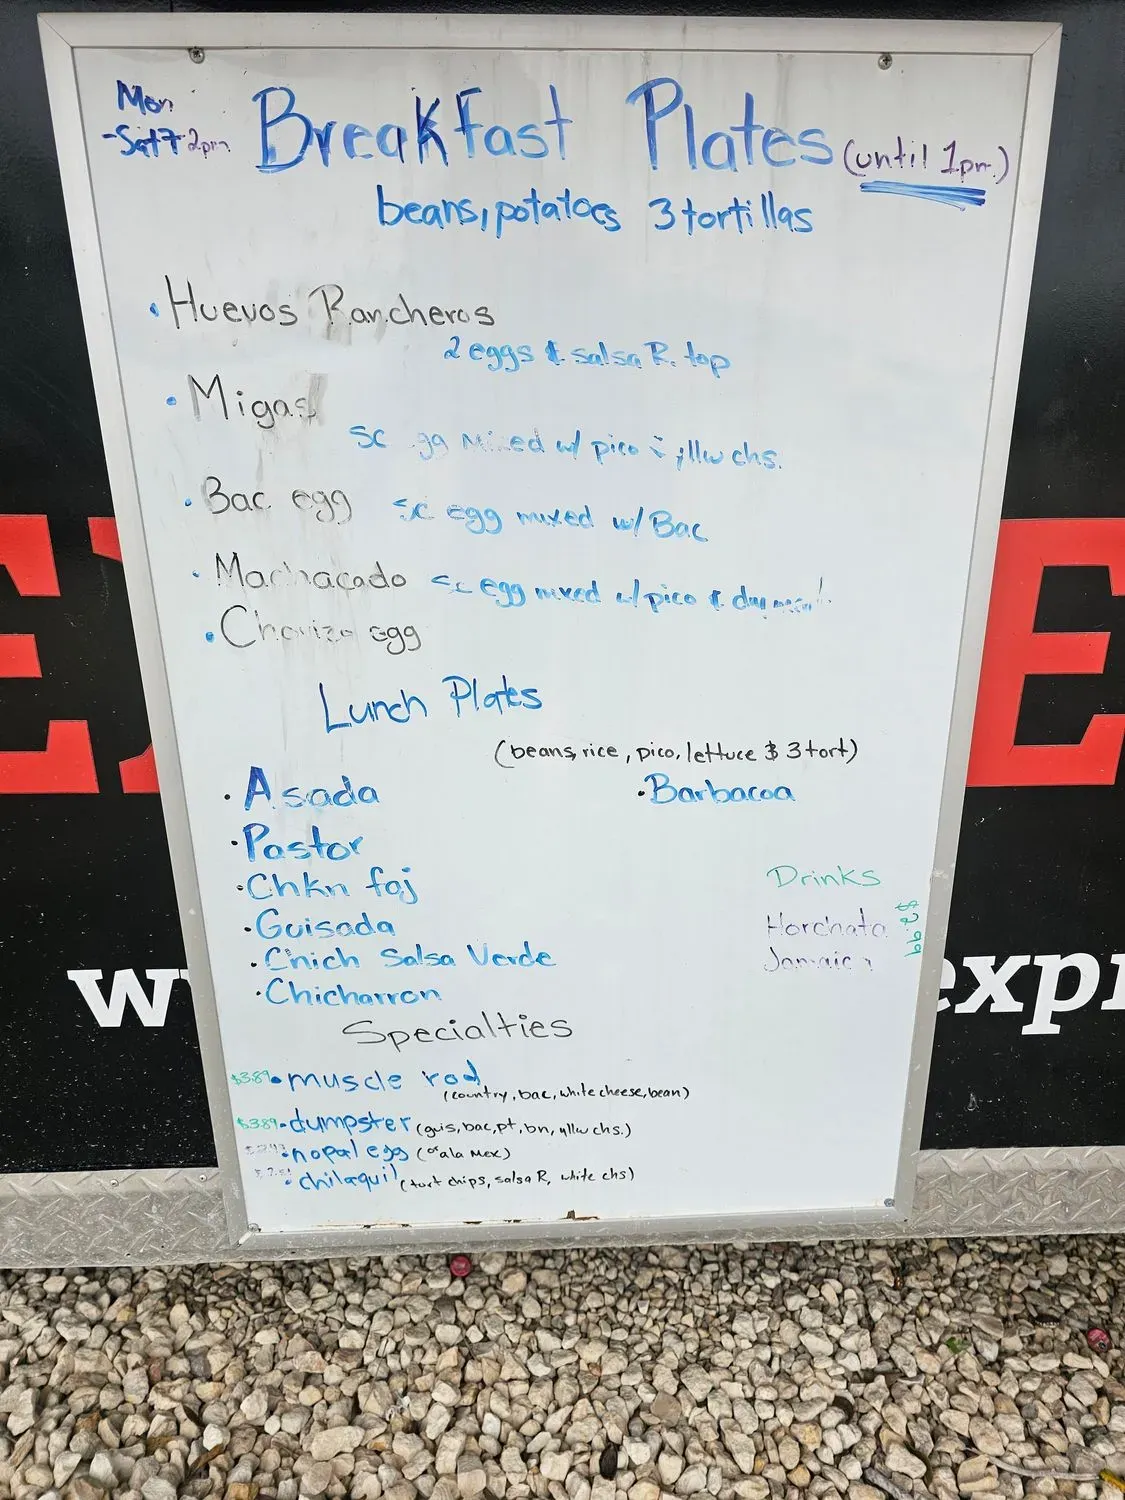 Mon
-Sat 7 2pm
Breakfast Plates (until 1pm)
beans, potatoes 3 tortillas
• Huevos Rancheros
2 eggs & salsa R. top
• Migas
sc egg mixed w/ pico & yllw chs.
• Bac egg sc egg mixed w/ Bac
• Machacado sc egg mixed w/ pico & dry meat
• Chorizo egg
Lunch Plates
(beans, rice, pico, lettuce $ 3 tort)
• Asada
• Barbacoa
• Pastor
• Chkn faj
• Guisada
• Chich Salsa Verde
• Chicharron
Drinks
Horchata
Jamaica
$2.99
Specialties
$3.89 • muscle rod
(country, bac, white cheese, bean)
$3.89 • dumpster (guis, bac, pt, bn, yllw chs.)
• nopal egg (or ala Mex)
• chilaquil (tort chips, salsa R, white chs)
EX
E
w
expr